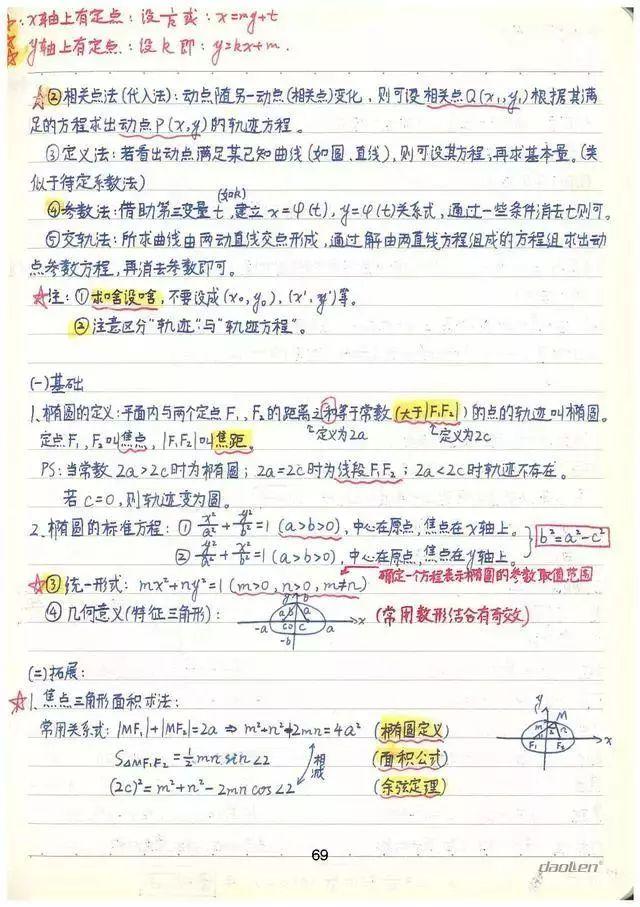 x轴上有定点：设1/k或：x=my+t
y轴上有定点：设k即：y=kx+m.
②相关点法(代入法)：动点随另一动点(相关点)变化，则可设相关点Q(x₁,y₁)根据其满
足的方程求出动点P(x,y)的轨迹方程。
③定义法：若看出动点满足某已知曲线(如圆、直线)，则可设其方程，再求基本量。(类
似于待定系数法)
④参数法：借助第三变量t(如k)，建立x=φ(t)，y=φ(t)关系式，通过一些条件消去t则可。
⑤交轨法：所求曲线由两动直线交点形成，通过解由两直线方程组成的方程组求出动
点参数方程，再消去参数即可。
☆注：①求啥设啥，不要设成(x₀,y₀)，(x',y')等。
②注意区分"轨迹"与"轨迹方程"。
(一)基础
1、椭圆的定义：平面内与两个定点F₁，F₂的距离之和等于常数(大于|F₁F₂|)的点的轨迹叫椭圆。
定义为2a 定义为2c
定点F₁，F₂叫焦点，|F₁F₂|叫焦距。
PS：当常数2a>2c时为椭圆；2a=2c时为线段F₁F₂；2a<2c时轨迹不存在。
若c=0，则轨迹变为圆。
2、椭圆的标准方程：①x²/a²+y²/b²=1(a>b>0)，中心在原点，焦点在x轴上。
b²=a²-c²
②y²/a²+x²/b²=1(a>b>0)，中心在原点，焦点在y轴上。
确定一个方程表示椭圆的参数取值范围
☆③统一形式：mx²+ny²=1(m>0,n>0,m≠n)
④几何意义(特征三角形)： -a a b -b a a c c x y (常用数形结合有奇效)
(二)拓展：
☆1、焦点三角形面积求法：
常用关系式：|MF₁|+|MF₂|=2a⇒m²+n²+2mn=4a² (椭圆定义)
S△MF₁F₂=½mn sin∠2 (面积公式)
相减
(2c)²=m²+n²-2mn cos∠2 (余弦定理)
y M m n F₁ F₂ x
69
daolen